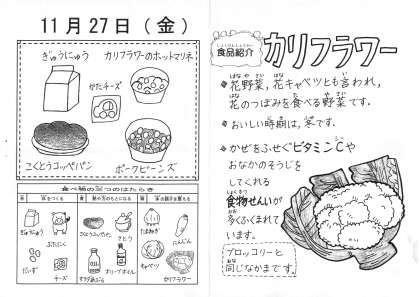 11月27日(金)
ぎゅうにゅう
カリフラワーのホットマリネ
かたチーズ
こくとうコッペパン
ポークビーンズ
食べ物の三つのはたらき
ぎゅうにゅう
ぶたにく
だいず
チーズ
こくとうコッペパン
さとう
オリーブオイル
たまねぎ
にんじん
キャベツ
カリフラワー
食品紹介
カリフラワー
花野菜,花キャベツとも言われ,
花のつぼみを食べる野菜です.
おいしい時期は,冬です.
かぜをふせぐビタミンCや
おなかのそうじを
してくれる
食物せんいが
多くふくまれて
います.
ブロッコリーと
同じなかまです.